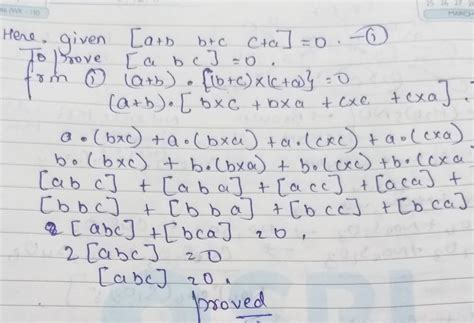 Here, given [a+b b+c c+a] = 0. - ①
To prove [a b c] = 0.
from ① (a+b) • {(b+c) × (c+a)} = 0
(a+b) • [b×c + b×a + c×c + c×a].
a • (b×c) + a • (b×a) + a • (c×c) + a • (c×a)
b • (b×c) + b • (b×a) + b • (c×c) + b • (c×a
[ab c] + [a b a] + [a cc] + [aca] +
[b b c] + [b b a] + [b cc] + [b ca]
[abc] + [bca] = 0,
2 [abc] = 0
[abc] = 0.
proved
MARCH